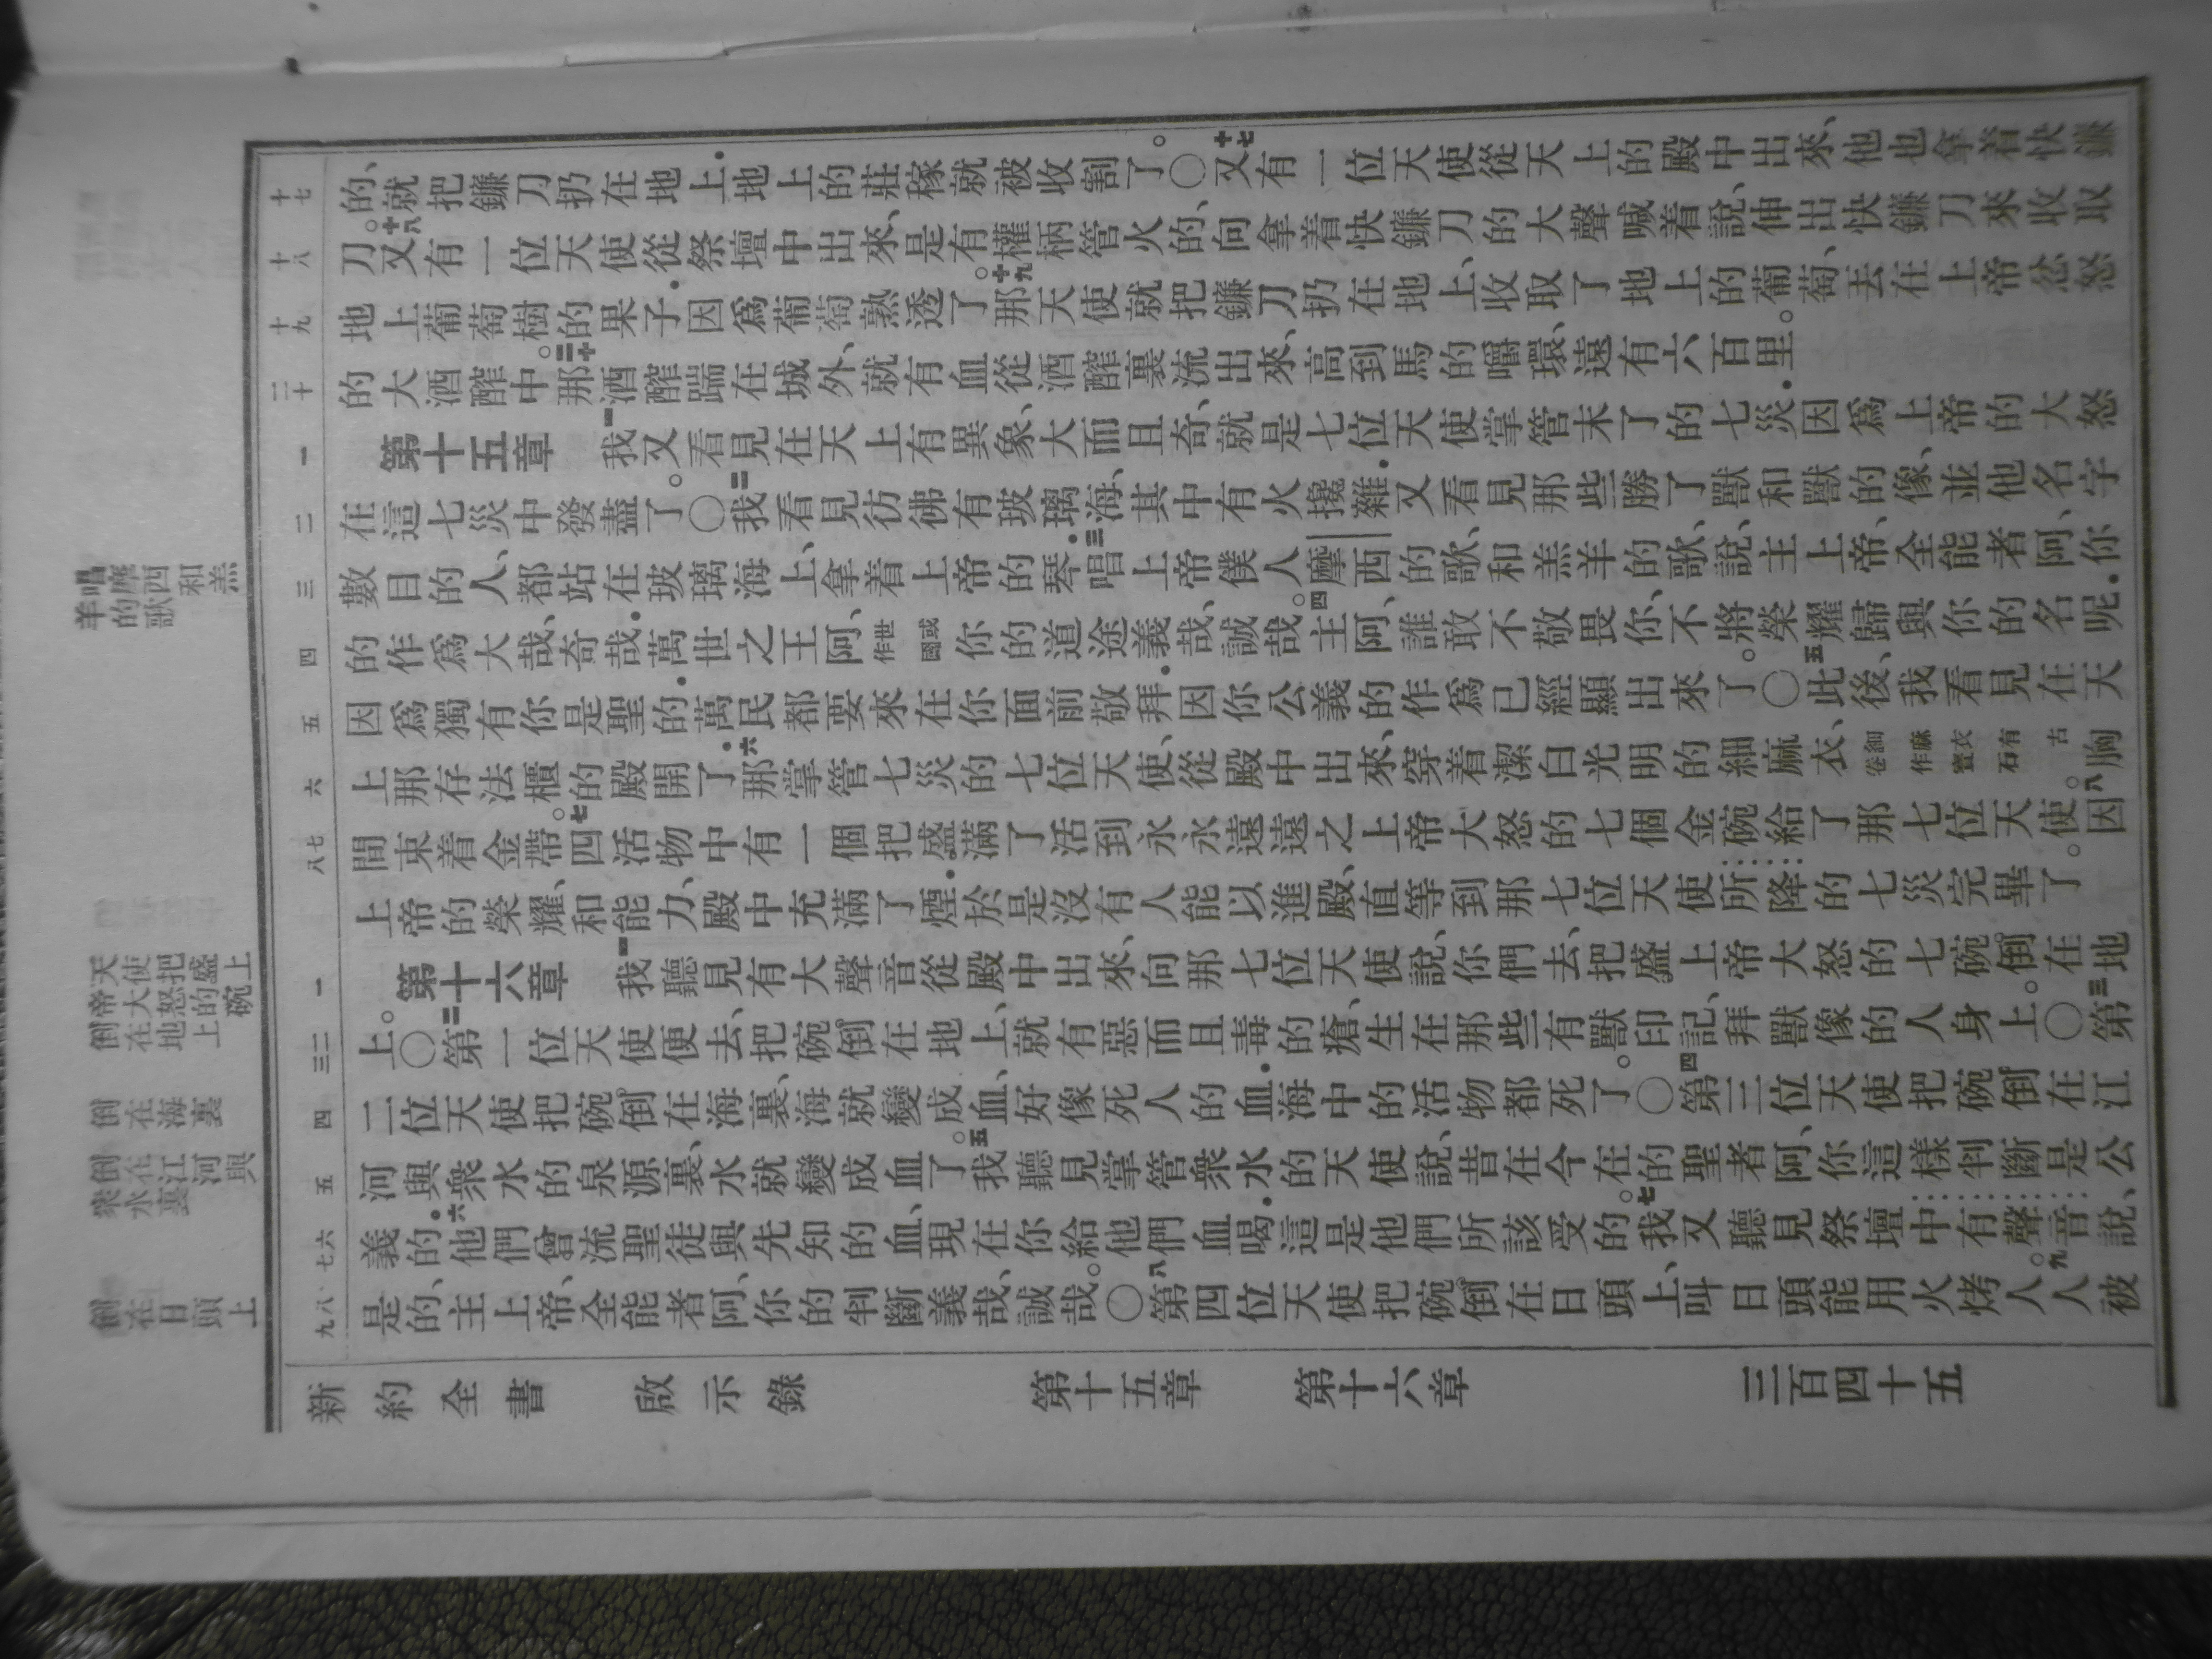 唱摩西和羔
羊的歌
天使把盛上
帝大怒的碗
倒在地上
倒在海裏
倒在江河與
衆水裏
倒在日頭上
十七
十八
十九
二十
一
二
三
四
五
六
七
八
一
二
三
四
五
六
七
八
九
的、就把鐮刀扔在地上．地上的莊稼就被收割了。〇十七又有一位天使從天上的殿中出來、他也拿着快鐮
刀。十八又有一位天使從祭壇中出來、是有權柄管火的、向拿着快鐮刀的大聲喊着說、伸出快鐮刀來收取
地上葡萄樹的果子．因爲葡萄熟透了。十九那天使就把鐮刀扔在地上、收取了地上的葡萄、丟在上帝忿怒
的大酒醡中。二十那酒醡踹在城外、就有血從酒醡裏流出來、高到馬的嚼環、遠有六百里。
第十五章 一我又看見在天上有異象、大而且奇、就是七位天使掌管末了的七災．因爲上帝的大怒
在這七災中發盡了。〇二我看見彷彿有玻璃海、其中有火攙雜．又看見那些勝了獸和獸的像、並他名字
數目的人、都站在玻璃海上、拿着上帝的琴．三唱上帝僕人摩西的歌、和羔羊的歌、說、主上帝、全能者阿、你
的作爲大哉、奇哉．萬世之王阿、世或作國你的道途義哉、誠哉。四主阿、誰敢不敬畏你、不將榮耀歸與你的名呢．
因爲獨有你是聖的．萬民都要來在你面前敬拜．因你公義的作爲已經顯出來了。〇五此後、我看見在天
上那存法櫃的殿開了．六那掌管七災的七位天使、從殿中出來、穿着潔白光明的細麻衣、細麻衣有古卷作寶石胸
間束着金帶。七四活物中有一個把盛滿了活到永永遠遠之上帝大怒的七個金碗給了那七位天使。八因
上帝的榮耀、和能力、殿中充滿了煙．於是沒有人能以進殿、直等到那七位天使所降的七災完畢了。
第十六章 一我聽見有大聲音從殿中出來、向那七位天使說、你們去、把盛上帝大怒的七碗倒在地
上。〇二第一位天使便去、把碗倒在地上、就有惡而且毒的瘡、生在那些有獸印記、拜獸像的人身上。〇三第
二位天使把碗倒在海裏、海就變成血、好像死人的血．海中的活物都死了。〇四第三位天使把碗倒在江
河與衆水的泉源裏、水就變成血了。五我聽見掌管衆水的天使說、昔在今在的聖者阿、你這樣判斷是公
義的．六他們曾流聖徒與先知的血、現在你給他們血喝．這是他們所該受的。七我又聽見祭壇中有聲音說、
是的、主上帝、全能者阿、你的判斷義哉、誠哉。〇八第四位天使把碗倒在日頭上、叫日頭能用火烤人。九人被
新約全書 啟示錄 第十五章 第十六章 三百四十五